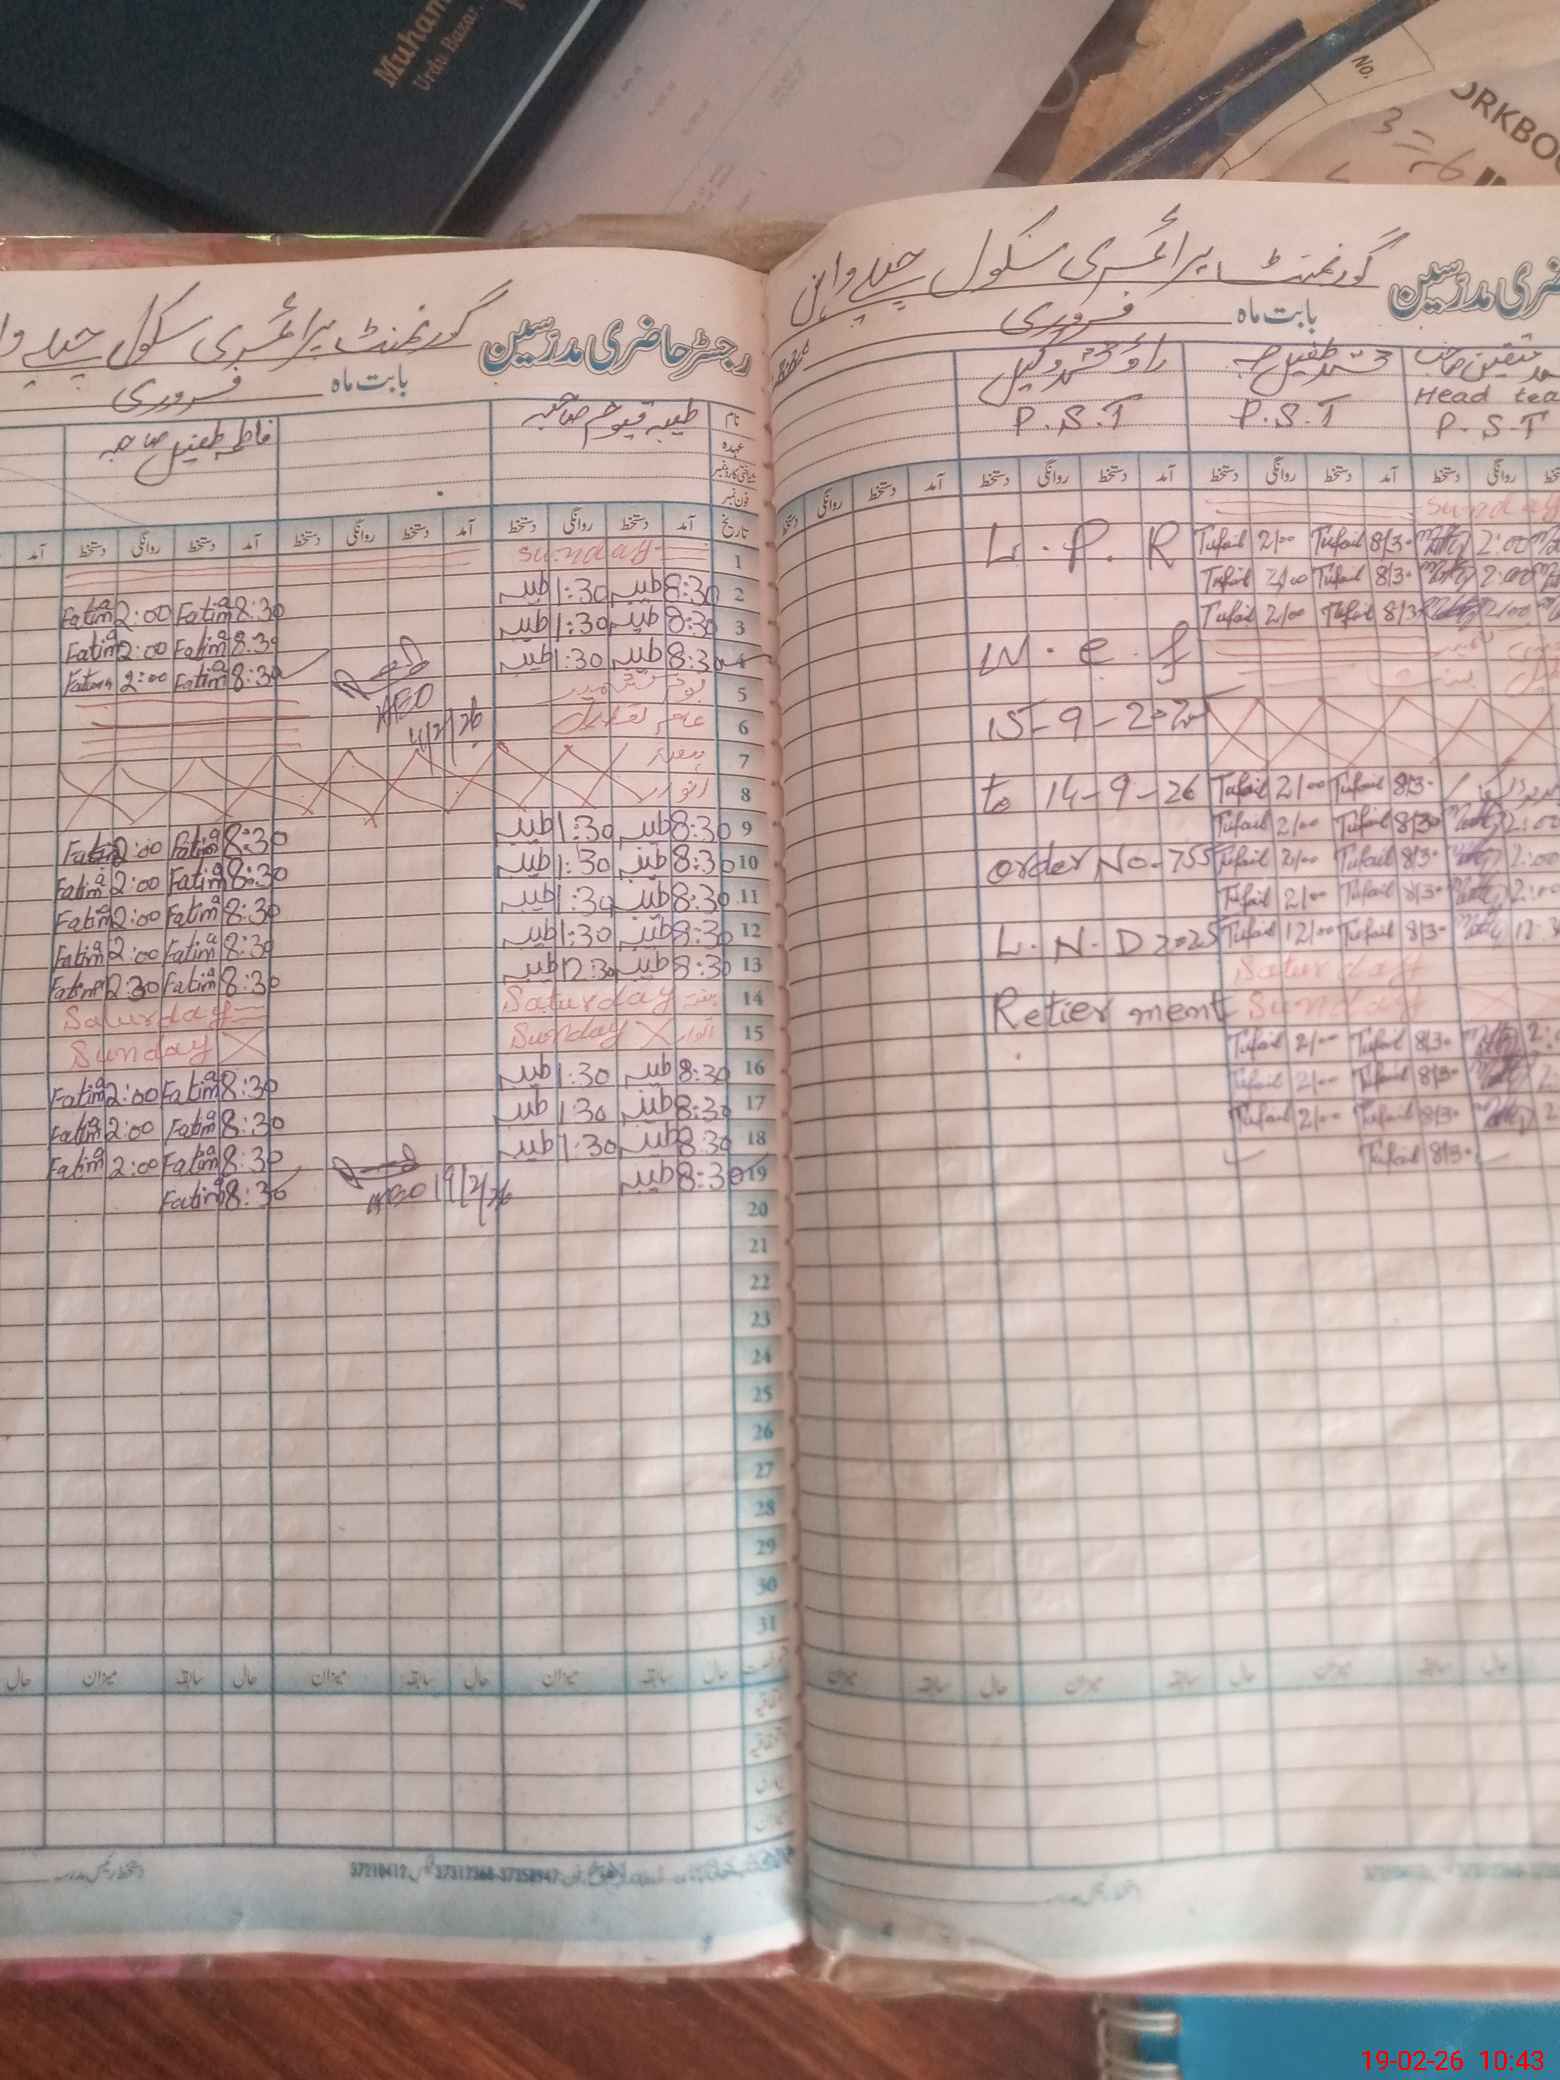 Muham
Urdu Bazar,
No.
ORKBOO
3 = 6
گورنمنٹ پرائمری سکول چیلے وا
رجسٹر حاضری مدرسین
بابت ماہ فروری
نام طیبہ قیوم صاحبہ فاطمہ طفیل صاحبہ
عہدہ
شناختی کارڈ نمبر
فون نمبر
تاریخ آمد دستخط روانگی دستخط آمد دستخط روانگی دستخط آمد دستخط روانگی دستخط آمد
1 Sunday
2 8:30 طیبہ 1:30 طیبہ Fatima 8:30 Fatima 2:00
3 8:30 طیبہ 1:30 طیبہ Fatima 8:30 Fatima 2:00
4 8:30 طیبہ 1:30 طیبہ AEO 4/2/26 Fatima 8:30 Fatima 2:00
5 یوم کشمیر
6 عام تعطیل
7 ہفتہ
8 اتوار
9 8:30 طیبہ 1:30 طیبہ Fatima 8:30 Fatima 2:00
10 8:30 طیبہ 1:30 طیبہ Fatima 8:30 Fatima 2:00
11 8:30 طیبہ 1:30 طیبہ Fatima 8:30 Fatima 2:00
12 8:30 طیبہ 1:30 طیبہ Fatima 8:30 Fatima 2:00
13 8:30 طیبہ 12:30 طیبہ Fatima 8:30 Fatima 2:30
14 ہفتہ Saturday Saturday
15 اتوار Sunday Sunday
16 8:30 طیبہ 1:30 طیبہ Fatima 8:30 Fatima 2:00
17 8:30 طیبہ 1:30 طیبہ Fatima 8:30 Fatima 2:00
18 8:30 طیبہ 1:30 طیبہ Fatima 8:30 Fatima 2:00
19 8:30 طیبہ AEO 19/2/26 Fatima 8:30
20
21
22
23
24
25
26
27
28
29
30
31
حال سابقہ میزان حال سابقہ میزان حال سابقہ میزان حال
گورنمنٹ پرائمری سکول چیلے واہن
ضری مدرسین
بابت ماہ فروری
محمد طفیل صاحب
Head tea
P.S.T P.S.T P.S.T
دستخط روانگی دستخط آمد دستخط روانگی دستخط آمد دستخط روانگی دستخط آمد دستخط روانگی دستخط
Sunday
2:00 8/30 Tufail 2/00 Tufail L.P.R
2:00 8/30 Tufail 2/00 Tufail
2:00 8/30 Tufail 2/00 Tufail
W.e.f
15-9-2025
8/30 Tufail 2/00 Tufail to 14-9-26
2:00 8/30 Tufail 2/00 Tufail
2:00 8/30 Tufail 2/00 Tufail order No. 755
2:00 8/30 Tufail 2/00 Tufail
12:3 8/30 Tufail 12/00 Tufail L.N.D 2025
Saturday
Sunday Retier ment
2: 8/30 Tufail 2/00 Tufail
2: 8/30 Tufail 2/00 Tufail
2 8/30 Tufail 2/00 Tufail
8/30 Tufail
حال سابقہ میزان حال سابقہ میزان حال سابقہ میزان
19-02-26 10:43